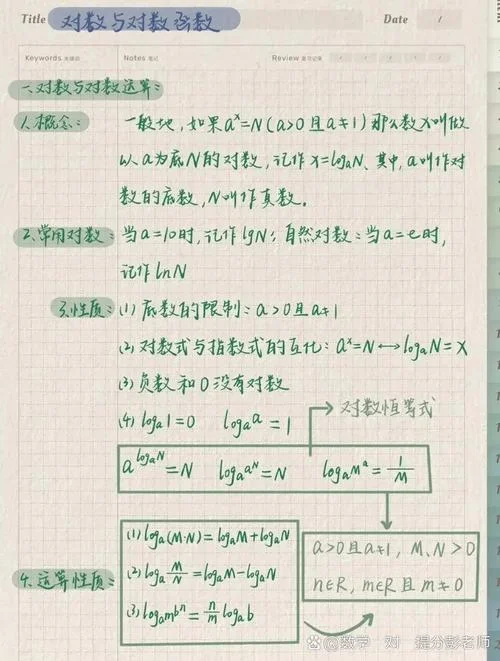 Title 对数与对数函数 Date /
Keywords 关键词 Notes 笔记 Review 复习记录 / / / / /
一、对数与对数运算:
1.概念: 一般地,如果aˣ=N(a>0且a≠1)那么数x叫做
以a为底N的对数,记作x=logₐN、其中,a叫作对
数的底数,N叫作真数.
2.常用对数: 当a=10时,记作lgN; 自然对数:当a=e时,
记作lnN
3.性质: (1) 底数的限制: a>0且a≠1
(2) 对数式与指数式的互化: aˣ=N⟷logₐN=x
(3) 负数和0没有对数
(4) logₐ1=0 logₐa=1 → 对数恒等式
a^(logₐN)=N logₐa^N=N log_a M^a=1/M
4.运算性质:
(1) logₐ(M·N)=logₐM+logₐN
(2) logₐ M/N=logₐM-logₐN
(3) log_(a^m) b^n=n/m logₐb
a>0且a≠1, M、N>0
n∈R, m∈R且m≠0
数学 对 提分彭老师